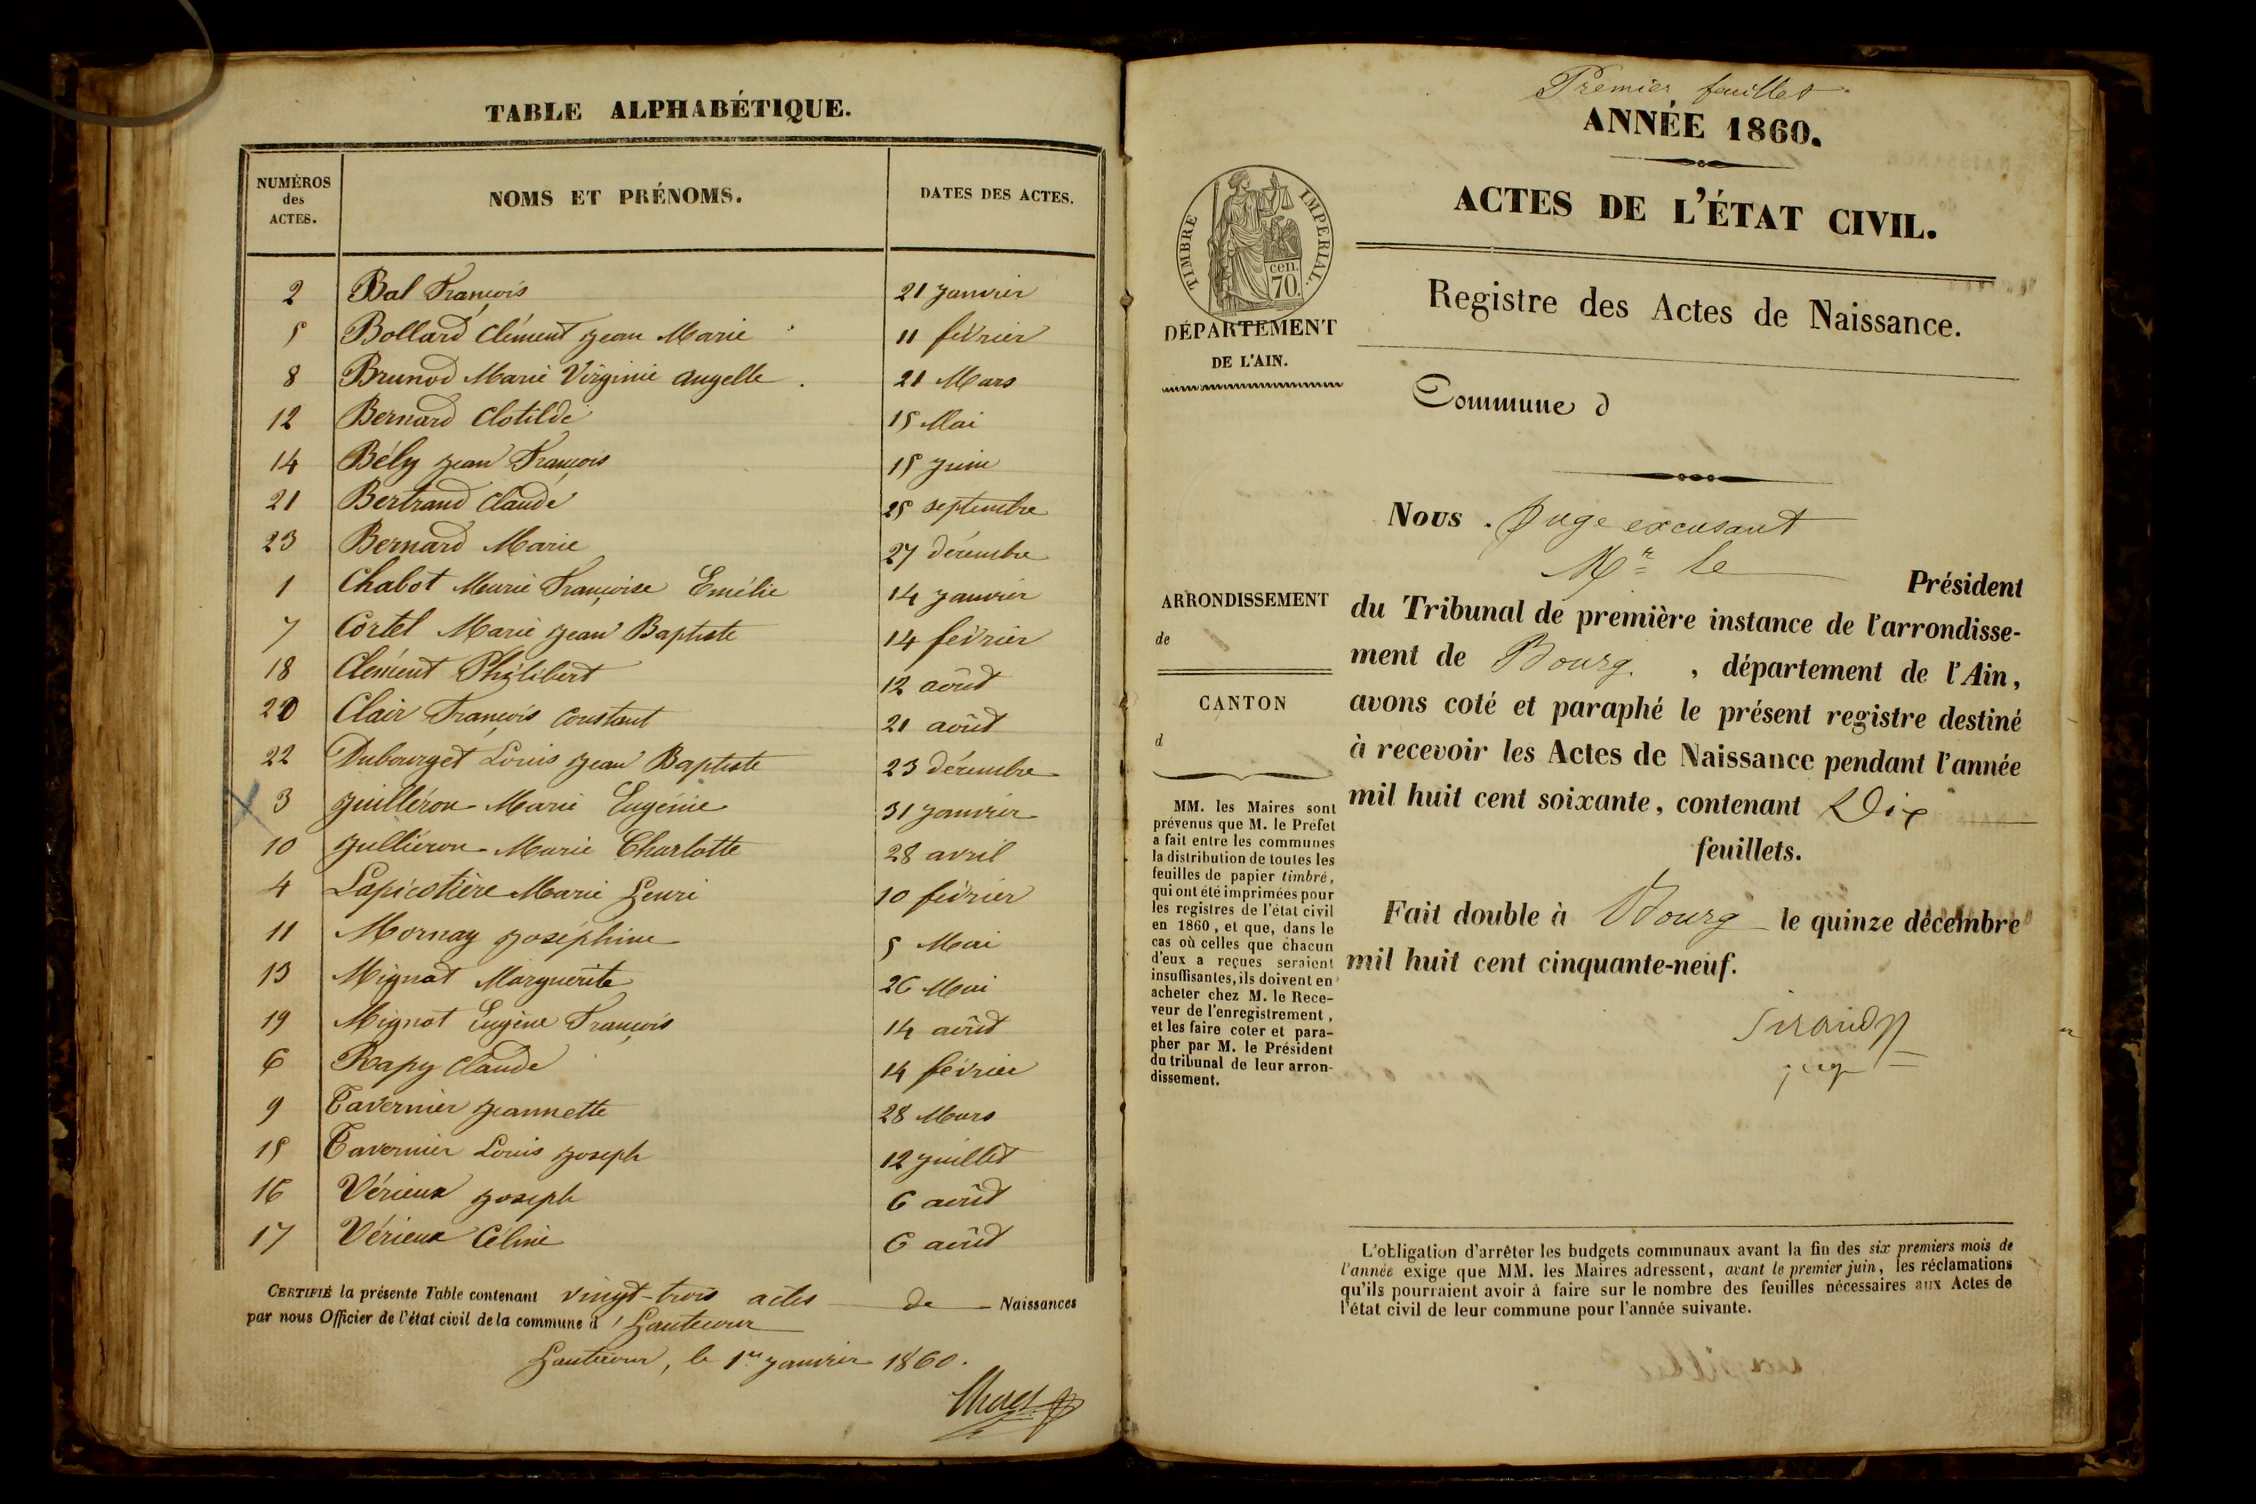 TABLE ALPHABÉTIQUE.
NUMÉROS des ACTES. NOMS ET PRÉNOMS. DATES DES ACTES.
2 Bal François 21 janvier
5 Bollard Clément jean Marie 11 février
8 Brunod Marie Virginie Angelle 21 Mars
12 Bernard Clotilde 15 Mai
14 Bély jean François 15 juin
21 Bertrand Claude 25 septembre
23 Bernard Marie 27 décembre
1 Chabot Marie Françoise Emélie 14 janvier
7 Cortel Marie jean Baptiste 14 février
18 Clément Philibert 12 août
20 Clair François Constant 21 août
22 Dubourget Louis jean Baptiste 23 décembre
3 juilléron Marie Eugénie 31 janvier
10 julliéron Marie Charlotte 28 avril
4 Lapicotière Marie henri 10 février
11 Mornay joséphine 5 Mai
13 Mignot Marguerite 26 Mai
19 Mignot Eugène François 14 août
6 Rapy Claude 14 février
9 Tavernier jeannette 28 Mars
15 Tavernier Louis joseph 12 juillet
16 Vérieux joseph 6 août
17 Vérieux Céline 6 août
CERTIFIÉ la présente Table contenant vingt-trois actes de Naissances
par nous Officier de l'état civil de la commune d' hautecour
hautecour, le 1er janvier 1860.
Premier feuillet
ANNÉE 1860.
ACTES DE L'ÉTAT CIVIL.
Registre des Actes de Naissance.
TIMBRE IMPERIAL.
cen.
70.
DÉPARTEMENT
DE L'AIN.
Commune d
ARRONDISSEMENT
de
CANTON
d
MM. les Maires sont
prévenus que M. le Préfet
a fait entre les communes
la distribution de toutes les
feuilles de papier timbré,
qui ont été imprimées pour
les registres de l'état civil
en 1860, et que, dans le
cas où celles que chacun
d'eux a reçues seraient
insuffisantes, ils doivent en
acheter chez M. le Rece-
veur de l'enregistrement,
et les faire coter et para-
pher par M. le Président
du tribunal de leur arron-
dissement.
Nous . juge excusant
Mr le Président
du Tribunal de première instance de l'arrondisse-
ment de Bourg. , département de l'Ain,
avons coté et paraphé le présent registre destiné
à recevoir les Actes de Naissance pendant l'année
mil huit cent soixante, contenant Dix
feuillets.
Fait double à Bourg le quinze décembre
mil huit cent cinquante-neuf.
juge
L'obligation d'arrêter les budgets communaux avant la fin des six premiers mois de
l'année exige que MM. les Maires adressent, avant le premier juin, les réclamations
qu'ils pourraient avoir à faire sur le nombre des feuilles nécessaires aux Actes de
l'état civil de leur commune pour l'année suivante.